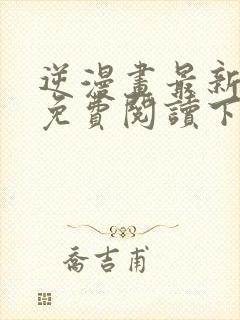 逆漫畫最新
免費閱讀下
喬吉甫